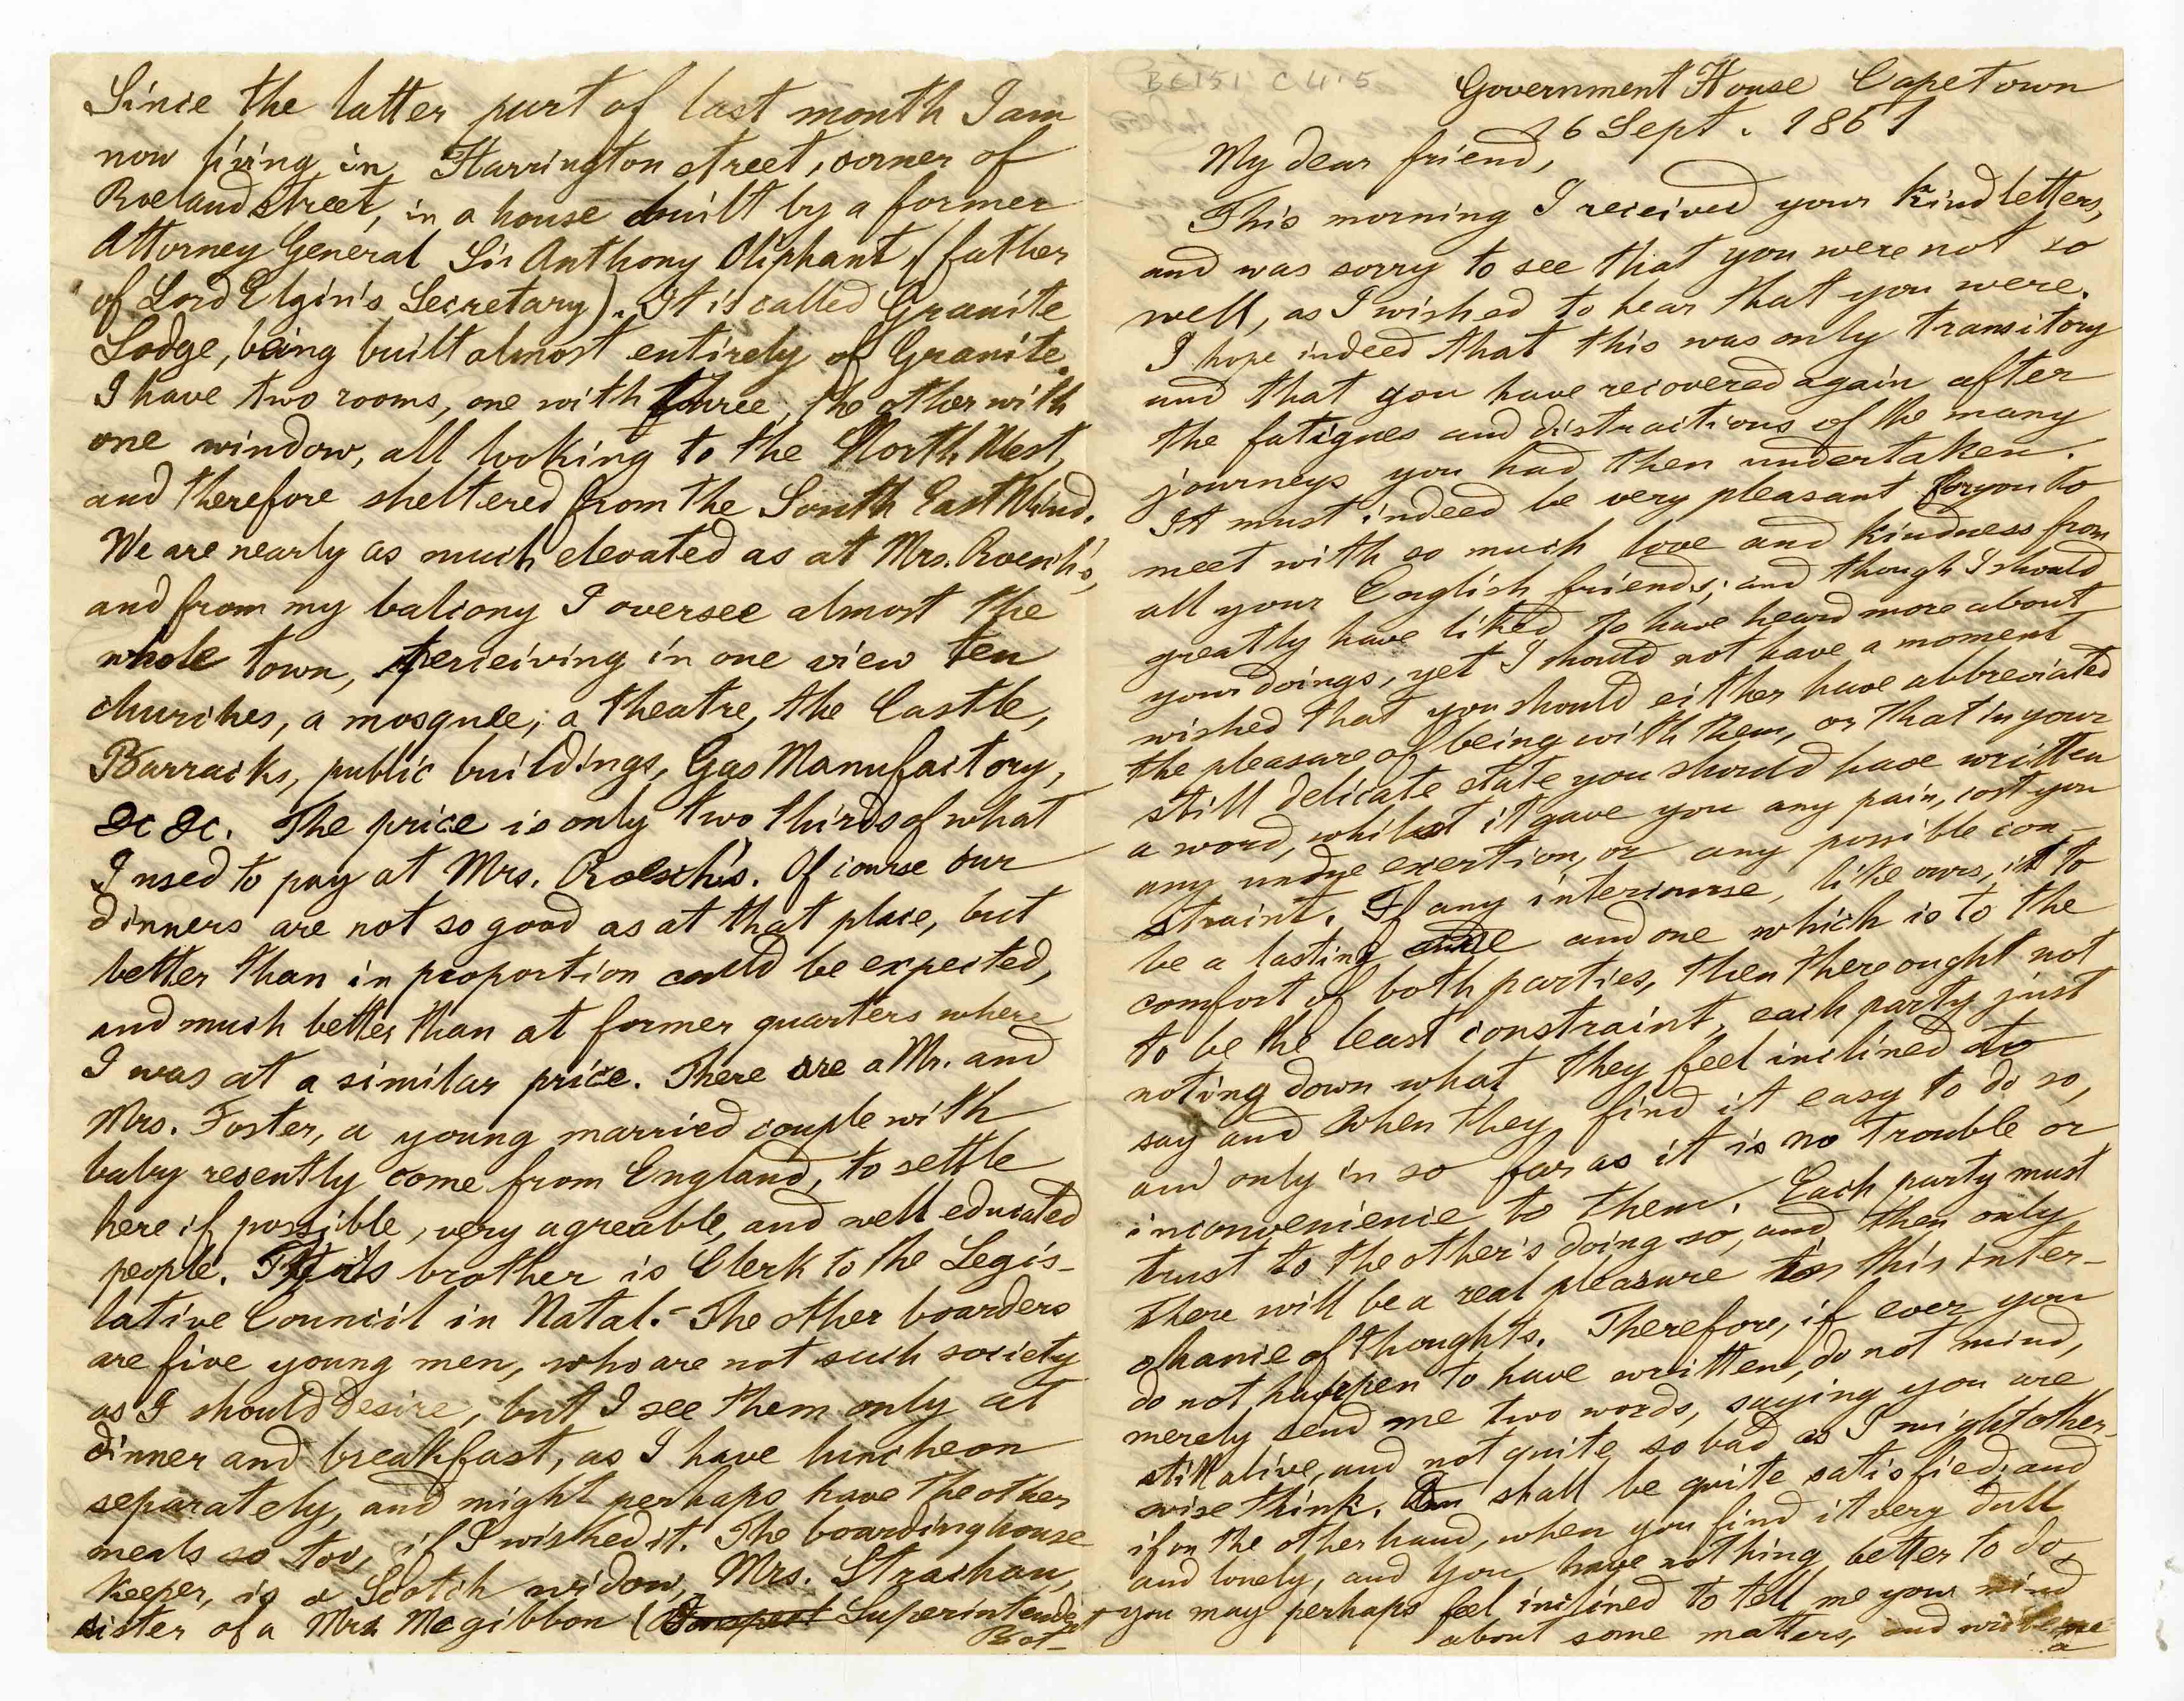 BC151 C4:5
Government House Capetown
16 Sept. 1861
My dear friend,
This morning I received your kind letters,
and was sorry to see that you were not so
well, as I wished to hear that you were.
I hope indeed that this was only transitory
and that you have recovered again after
the fatigues and distractions of the many
journeys you had then undertaken.
It must indeed be very pleasant for you to
meet with so much love and kindness from
all your English friends; and though I should
greatly have liked to have heard more about
your doings, yet I should not have a moment
wished that you should either have abbreviated
the pleasure of being with them, or that in your
still delicate state you should have written
a word, whilst it gave you any pain, cost you
any undue exertion, or any possible con-
straint. If any intercourse, like ours, is to
be a lasting one and one which is to the
comfort of both parties, then there ought not
to be the least constraint, each party just
noting down what they feel inclined to
say and when they find it easy to do so,
and only in so far as it is no trouble or
inconvenience to them. Each party must
trust to the other's doing so, and then only
there will be a real pleasure in this inter-
chance of thoughts. Therefore, if ever you
do not happen to have written, do not mind,
merely send me two words, saying you are
still alive, and not quite so bad as I might other-
wise think. I shall be quite satisfied; and
if on the other hand, when you find it very dull
and lonely, and you have nothing better to do,
you may perhaps feel inclined to tell me your mind
about some matters, and write me
a
Since the latter part of last month I am
now living in Harrington street, corner of
Roeland street, in a house built by a former
Attorney General Sir Anthony Oliphant (father
of Lord Elgin's Secretary). It is called Granite
Lodge, being built almost entirely of Granite.
I have two rooms, one with three, the other with
one window, all looking to the North West,
and therefore sheltered from the South East Wind.
We are nearly as much elevated as at Mrs. Roesch's,
and from my balcony I oversee almost the
whole town, perceiving in one view ten
churches, a mosquee, a theatre, the Castle,
Barracks, public buildings, Gas Manufactory,
&c &c. The price is only two thirds of what
I used to pay at Mrs. Roesch's. Of course our
dinners are not so good as at that place, but
better than in proportion could be expected,
and much better than at former quarters where
I was at a similar price. There are a Mr. and
Mrs. Foster, a young married couple with
baby recently come from England, to settle
here if possible, very agreable, and well educated
people. His brother is Clerk to the Legis-
lative Council in Natal. - The other boarders
are five young men, who are not such society
as I should desire, but I see them only at
dinner and breakfast, as I have luncheon
separately, and might perhaps have the other
meals so too, if I wished it. The boardinghouse
keeper, is a Scotch widow, Mrs. Strachan,
sister of a Mrs. Mcgibbon (Superintendent
Bot-